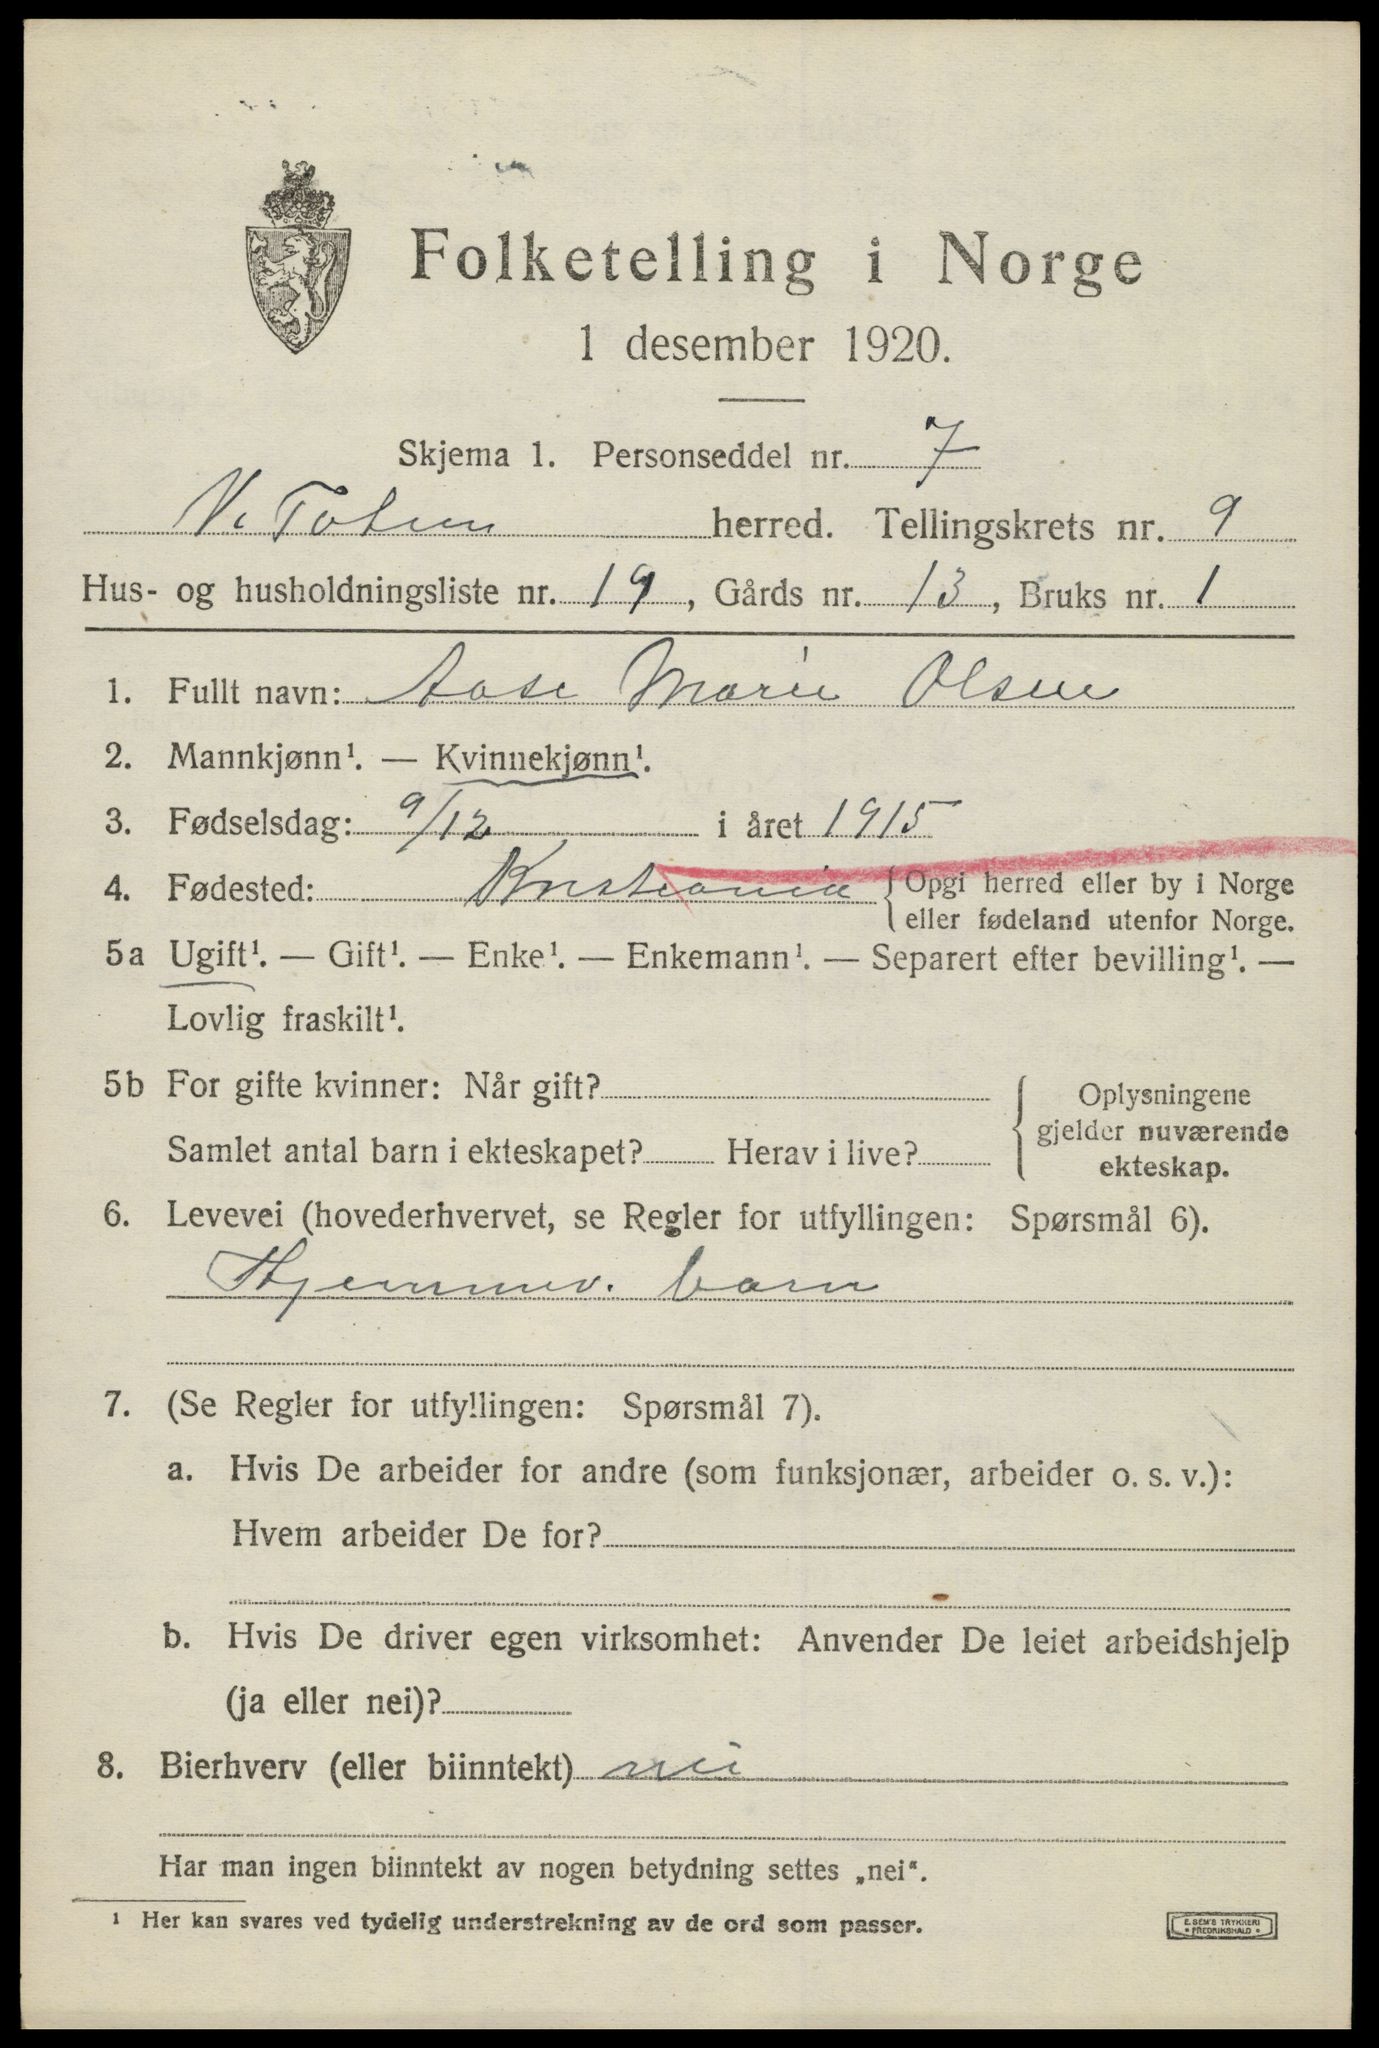 Folketelling i Norge
1 desember 1920.
Skjema 1. Personseddel nr. 7
V. Toten herred. Tellingskrets nr. 9
Hus- og husholdningsliste nr. 19, Gårds nr. 13, Bruks nr. 1
1. Fullt navn: Aase Marie Olsen
2. Mannkjønn¹. — Kvinnekjønn¹.
3. Fødselsdag: 9/12 i året 1915
4. Fødested: Kristiania { Opgi herred eller by i Norge
eller fødeland utenfor Norge.
5a Ugift¹. — Gift¹. — Enke¹. — Enkemann¹. — Separert efter bevilling¹. —
Lovlig fraskilt¹.
5b For gifte kvinner: Når gift?
Samlet antal barn i ekteskapet? Herav i live?
{ Oplysningene
gjelder nuværende
ekteskap.
6. Levevei (hovederhvervet, se Regler for utfyllingen: Spørsmål 6).
Hjemmev. barn
7. (Se Regler for utfyllingen: Spørsmål 7).
a. Hvis De arbeider for andre (som funksjonær, arbeider o. s. v.):
Hvem arbeider De for?
b. Hvis De driver egen virksomhet: Anvender De leiet arbeidshjelp
(ja eller nei)?
8. Bierhverv (eller biinntekt) nei
Har man ingen biinntekt av nogen betydning settes „nei“.
¹ Her kan svares ved tydelig understrekning av de ord som passer.
E. SEM'S TRYKKERI
• FREDRIKSHALD •